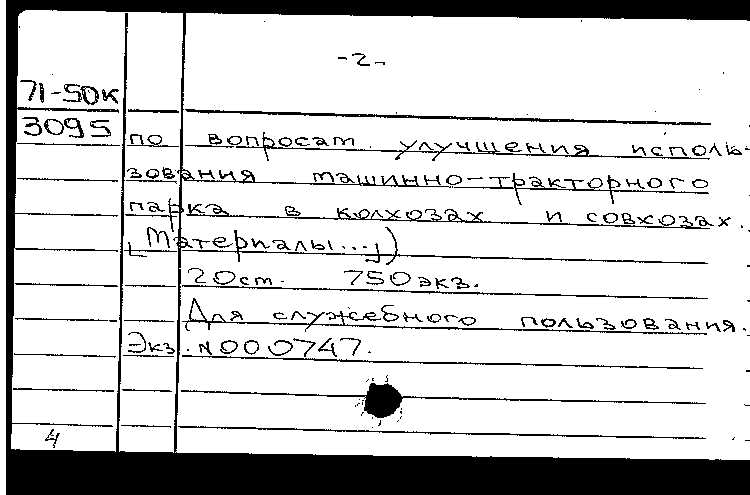 -2-
71-50к
3095
по вопросам улучшения исполь-
зования машинно-тракторного
парка в колхозах и совхозах.
[Материалы...])
20 ст. 750 экз.
Для служебного пользования.
Экз. N000747.
4